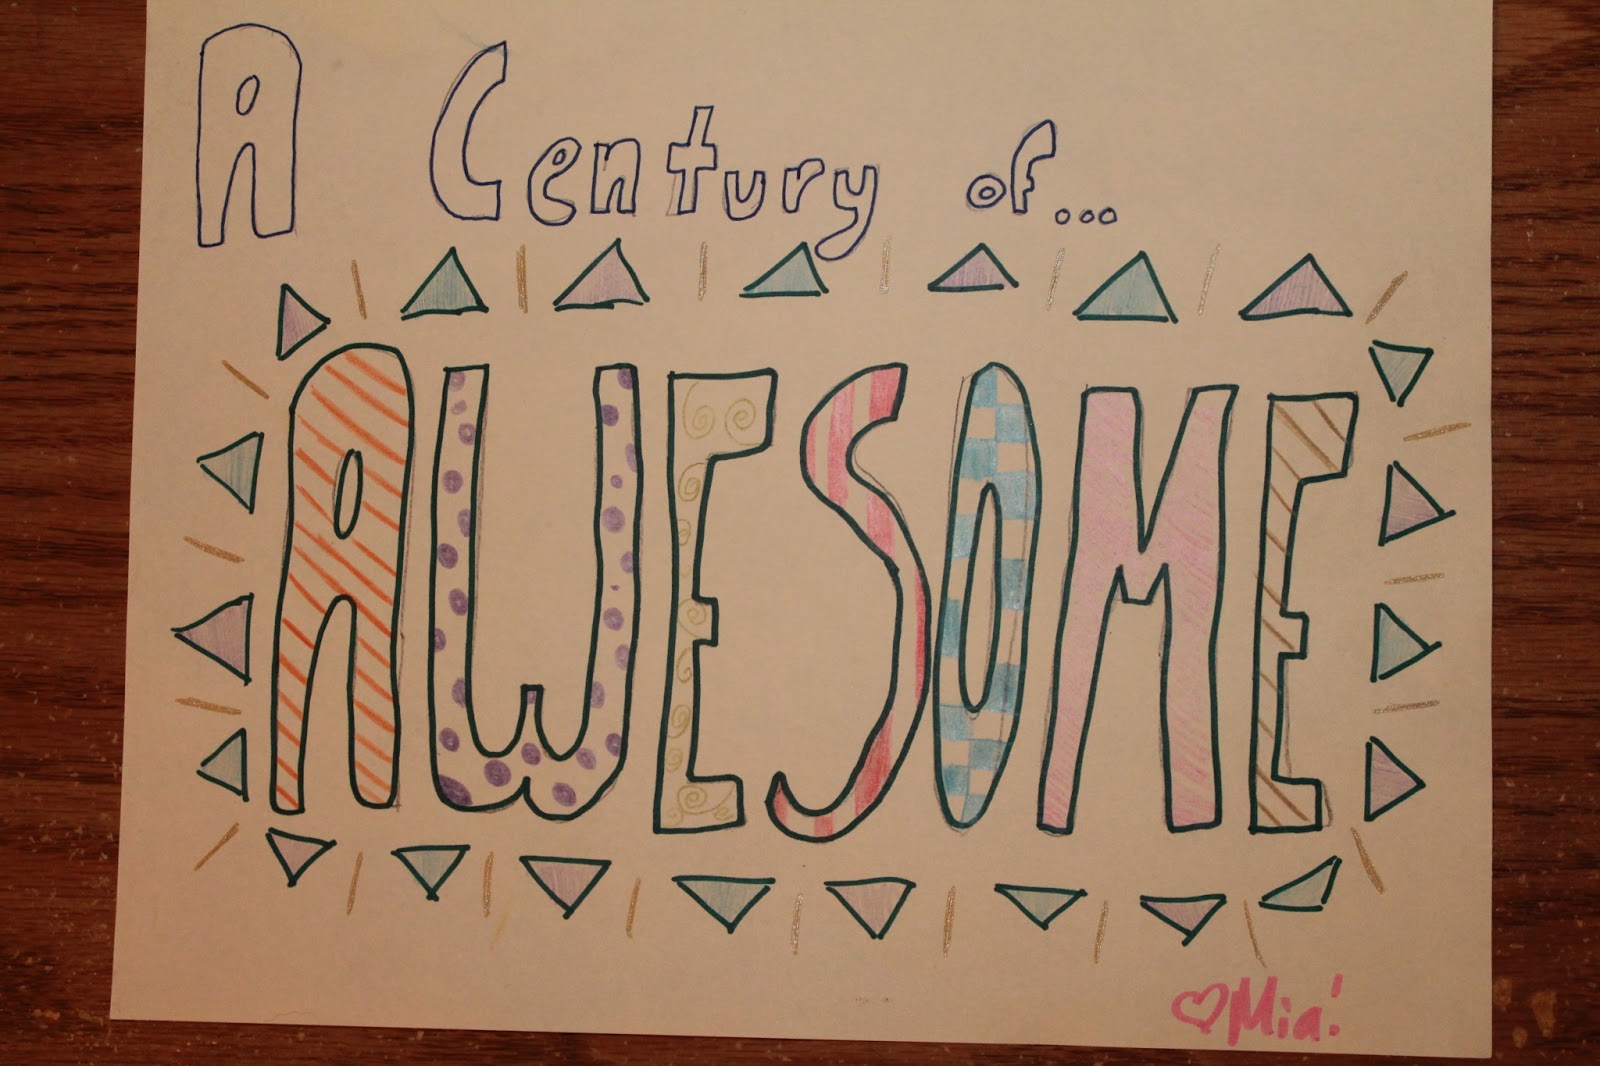 A Century of...
AWESOME
♡Mia!